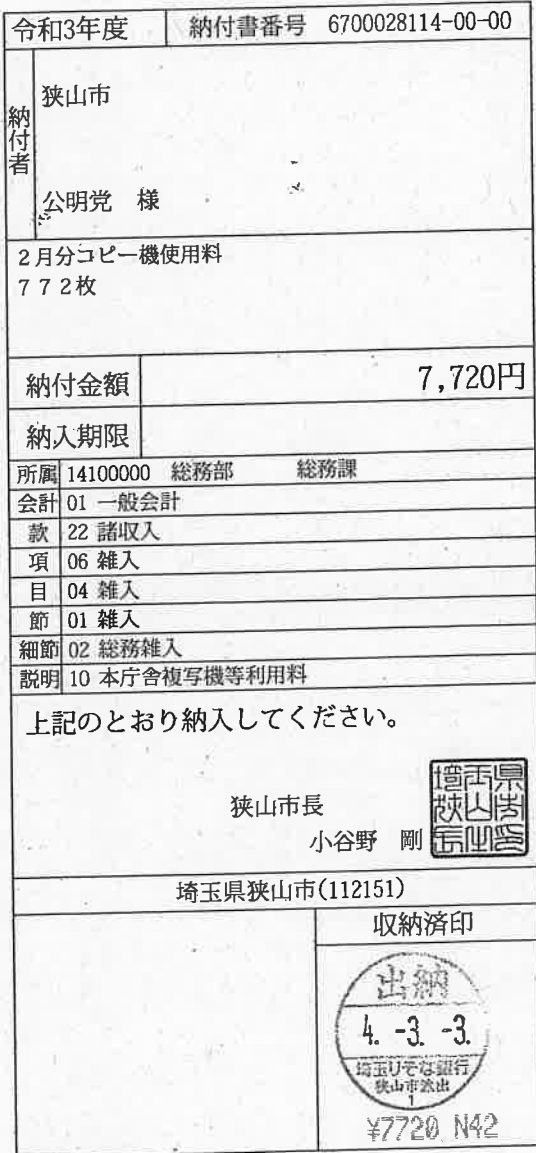 令和3年度 納付書番号 6700028114-00-00
納付者
狭山市
公明党 様
2月分コピー機使用料
772枚
納付金額 7,720円
納入期限
所属 14100000 総務部 総務課
会計 01 一般会計
款 22 諸収入
項 06 雑入
目 04 雑入
節 01 雑入
細節 02 総務雑入
説明 10 本庁舎複写機等利用料
上記のとおり納入してください。
狭山市長
小谷野 剛
埼玉県狭山市(112151)
収納済印
出納
4. -3. -3.
埼玉りそな銀行
狭山市派出
1
¥7720 N42